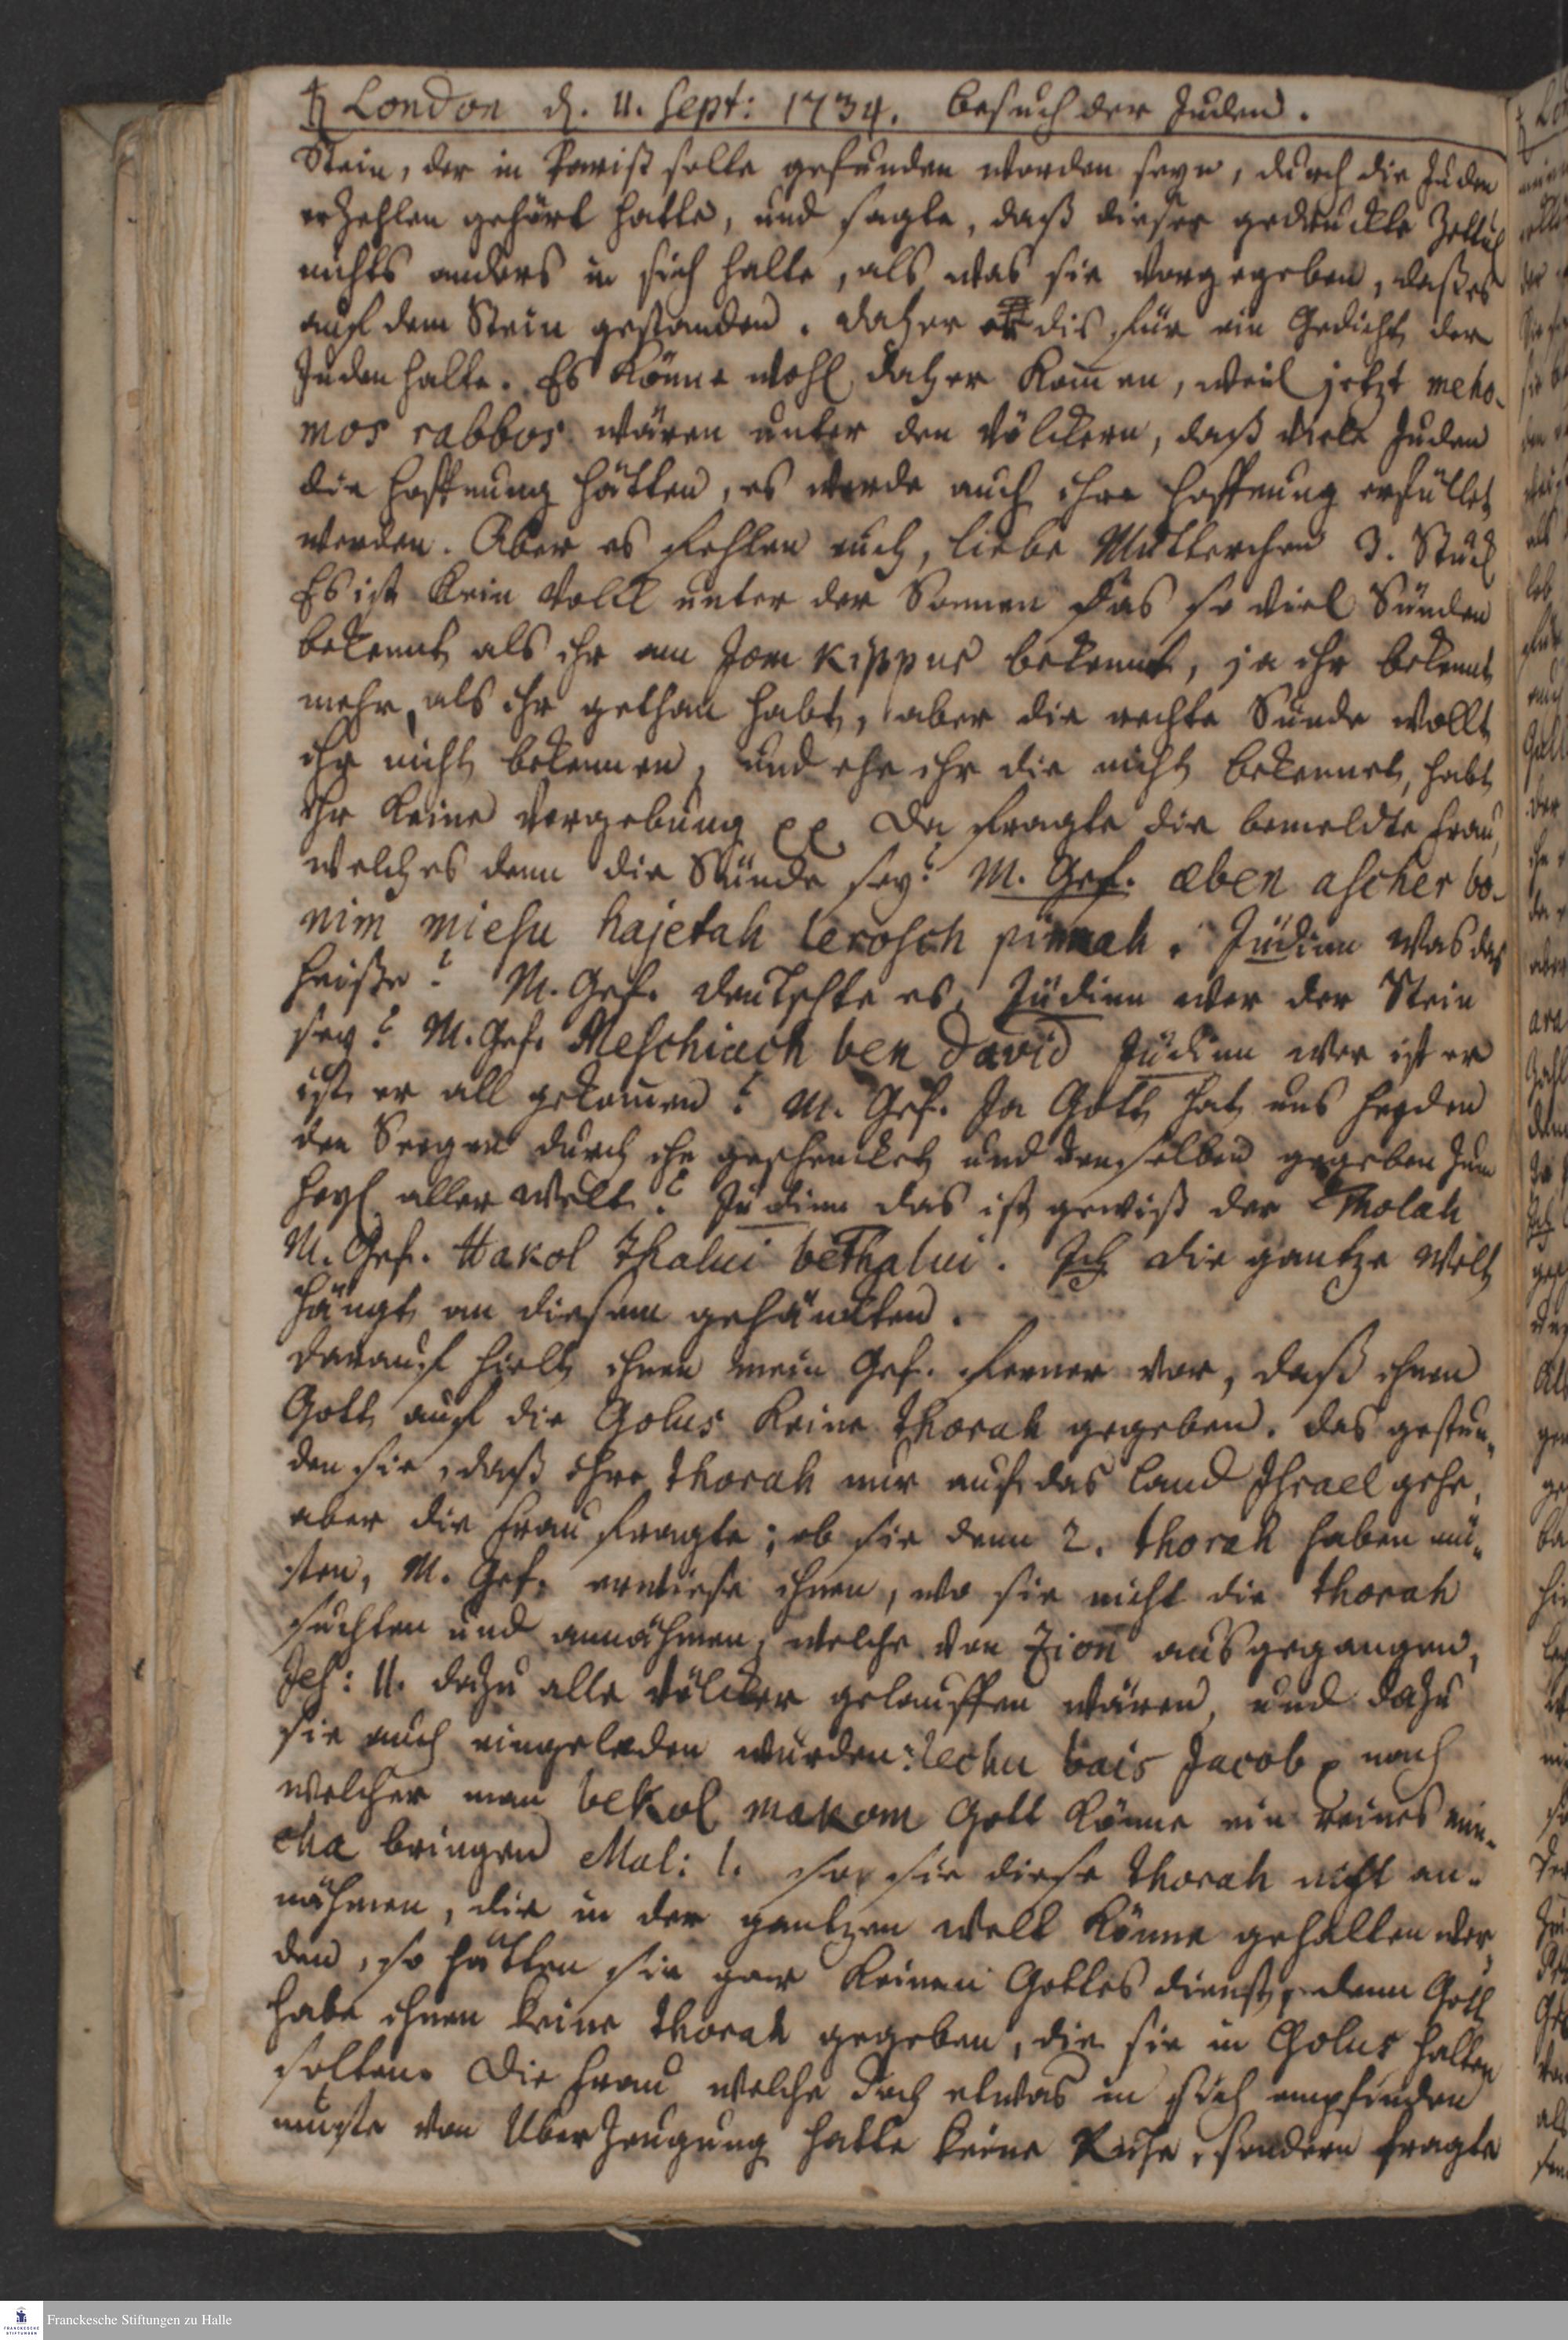 ♄ London d. 11. Sept: 1734. Besuch der Juden.
Stein, der in Pariß solle gefunden worden seyn, durch die Juden
erzehlen gehört hatte, und sagte, daß dieser gedruckte Zettul
nichts anders in sich halte, als was sie vorgegeben, daß es
auf dem Stein gestanden. daher er dis für ein Gedicht der
Juden halte. Es könne wohl daher kommen, weil jetzt meho-
mos rabbos wären unter den Völckern, daß viele Juden
die Hoffnung hätten, es werde auch ihre Hoffnung erfüllet
werden. Aber es fehlen euch, liebe Mutterchen 3. Stück
Es ist kein Volck unter der Sonnen das so viel Sünden
bekennt als ihr am Jom Kippur bekennt, ja ihr bekennt
mehr, als ihr gethan habt, aber die rechte Sünde wollt
ihr nicht bekennen, und ehe ihr die nicht bekennet, habt
ihr keine Vergebung pp Da fragte die bemeldte Frau,
welches denn die Sünde sey? M. Gef. æben ascher bo-
nim miesu hajetah lerosch pinnah. Jüdinn was das
heisse? M. Gef. deutschte es. Jüdinn wer der Stein
sey? M. Gef. Meschiach ben David Jüdinn wer ist er
ist er all gekommen? M. Gef. Ja Gott hat uns Heyden
den Seegen durch ihn geschencket und denselben gegeben zum
Heyl aller Welt? Jüdinn das ist gewiß der Tholah
M. Gef. Hakol Thalui beThalui. Ich die gantze Welt
hängt an diesem gehänckten.
Darauf hielt ihnen mein Gef. ferner vor, daß ihnen
Gott auf die Golus keine thorah gegeben. Das gestun-
den sie, daß ihre thorah nur auf das Land Israel gehe,
aber die Frau fragte; ob sie denn 2. thorah haben mü-
sten, M. Gef. erwiese ihnen, wo sie nicht die thorah
suchten und annähmen, welche von Zion ausgegangen,
Jes: 11. dazu alle Völcker gelauffen wären, und dazu
sie auch eingeladen wurden: lechu bais Jacob p nach
welcher man bekol makom Gott könne ein reines min-
cha bringen Mal: 1. so sie diese thorah nicht an-
nähmen, die in der gantzen Welt könne gehalten wer-
den, so hätten sie gar keinen Gottes dienst, denn Gott
habe ihnen keine thorah gegeben, die sie in Gholus halten
solten. Die Frau welche doch etwas in sich empfinden
muste von Uberzeugung hatte keine Ruhe, sondern fragte
Franckesche Stiftungen zu Halle